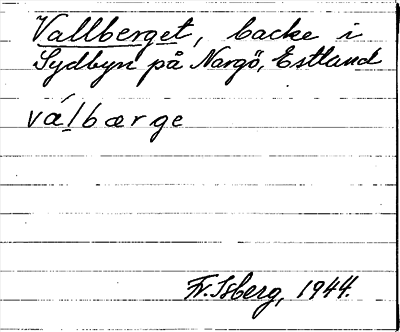 Vallberget, backe i
Sydbyn på Nargö, Estland
vál̲bærge
Fr. Isberg, 1944.